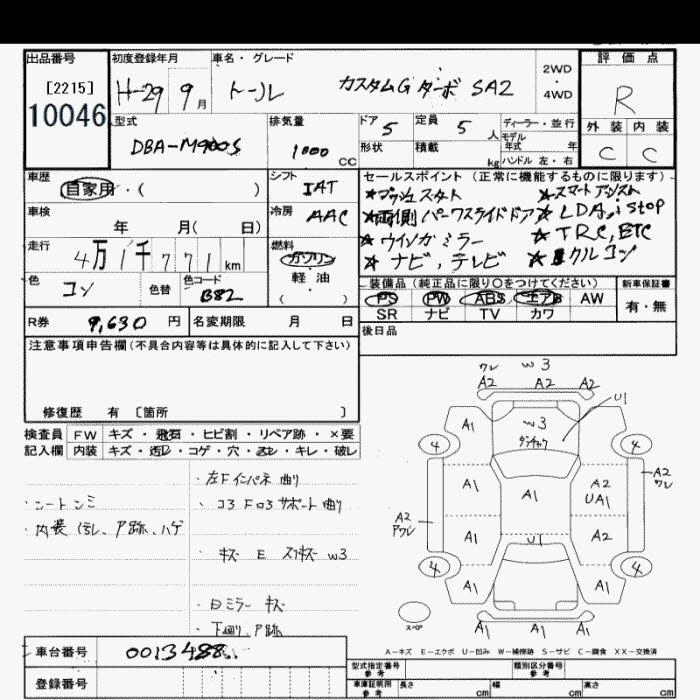 出品番号
[2215]
10046
初度登録年月
H-29 9月
車名・グレード
トール カスタムG ターボ SA2
2WD
4WD
評価点
R
外装 内装
C C
型式
DBA-M900S
排気量
1000 CC
ドア 5
定員 5 人
形状
積載 kg
ディーラー・並行
モデル年式 年
ハンドル 左・右
車歴
自家用・( )
シフト
IAT
車検
年 月( 日)
冷房
AAC
走行
4万1千771km
燃料
ガソリン
軽・油
( )
色
コン
色替
色コード
B82
セールスポイント（正常に機能するものに限ります）
★プッシュスタート ★スマートアシスト
★両側パーワスライドドア ★LDA, i stop
★ウインカミラー ★TRC, ETC
★ナビ, テレビ ★クルコン
装備品（純正品に限り○をつけてください）
PS PW ABS エアB AW
SR ナビ TV カワ
新車保証書
有・無
R券 9,630 円
名変期限 月 日
後日品
注意事項申告欄（不具合内容等は具体的に記入して下さい）
修復歴 有 〔箇所 〕
検査員記入欄
FW キズ・飛石・ヒビ割・リペア跡・×要
内装 キズ・汚レ・コゲ・穴・スレ・キレ・破レ
・シートシミ
・内装 汚れ、ア跡、ハゲ
・左Fインパネ 曲り
・コS Fロアサポート 曲り
・キズ E スリキズ W3
・日ミラー キズ
・下廻り、ア跡
ワレ W3
A2 A2 A2
U1
A1 W3
4 4
A1 A1 A2 UA1
A2 ワレ
A2 アワレ
A1 U1 A2
4 4
A1 A1
スペア
A1 A1 A1
A－キズ E－エクボ U－凹み W－補修跡 S－サビ C－腐食 XX－交換済
車台番号 0013488
登録番号
型式指定番号 参考
類別区分番号 参考
車庫証明用 参考
長さ cm
幅 cm
高さ cm